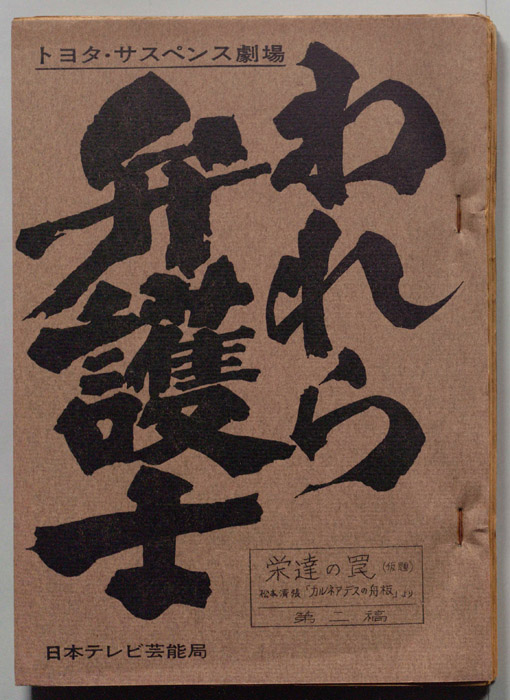 トヨタ・サスペンス劇場
われら
弁護士
栄達の罠(仮題)
松本清張「カルネアデスの舟板」より
第二稿
日本テレビ芸能局